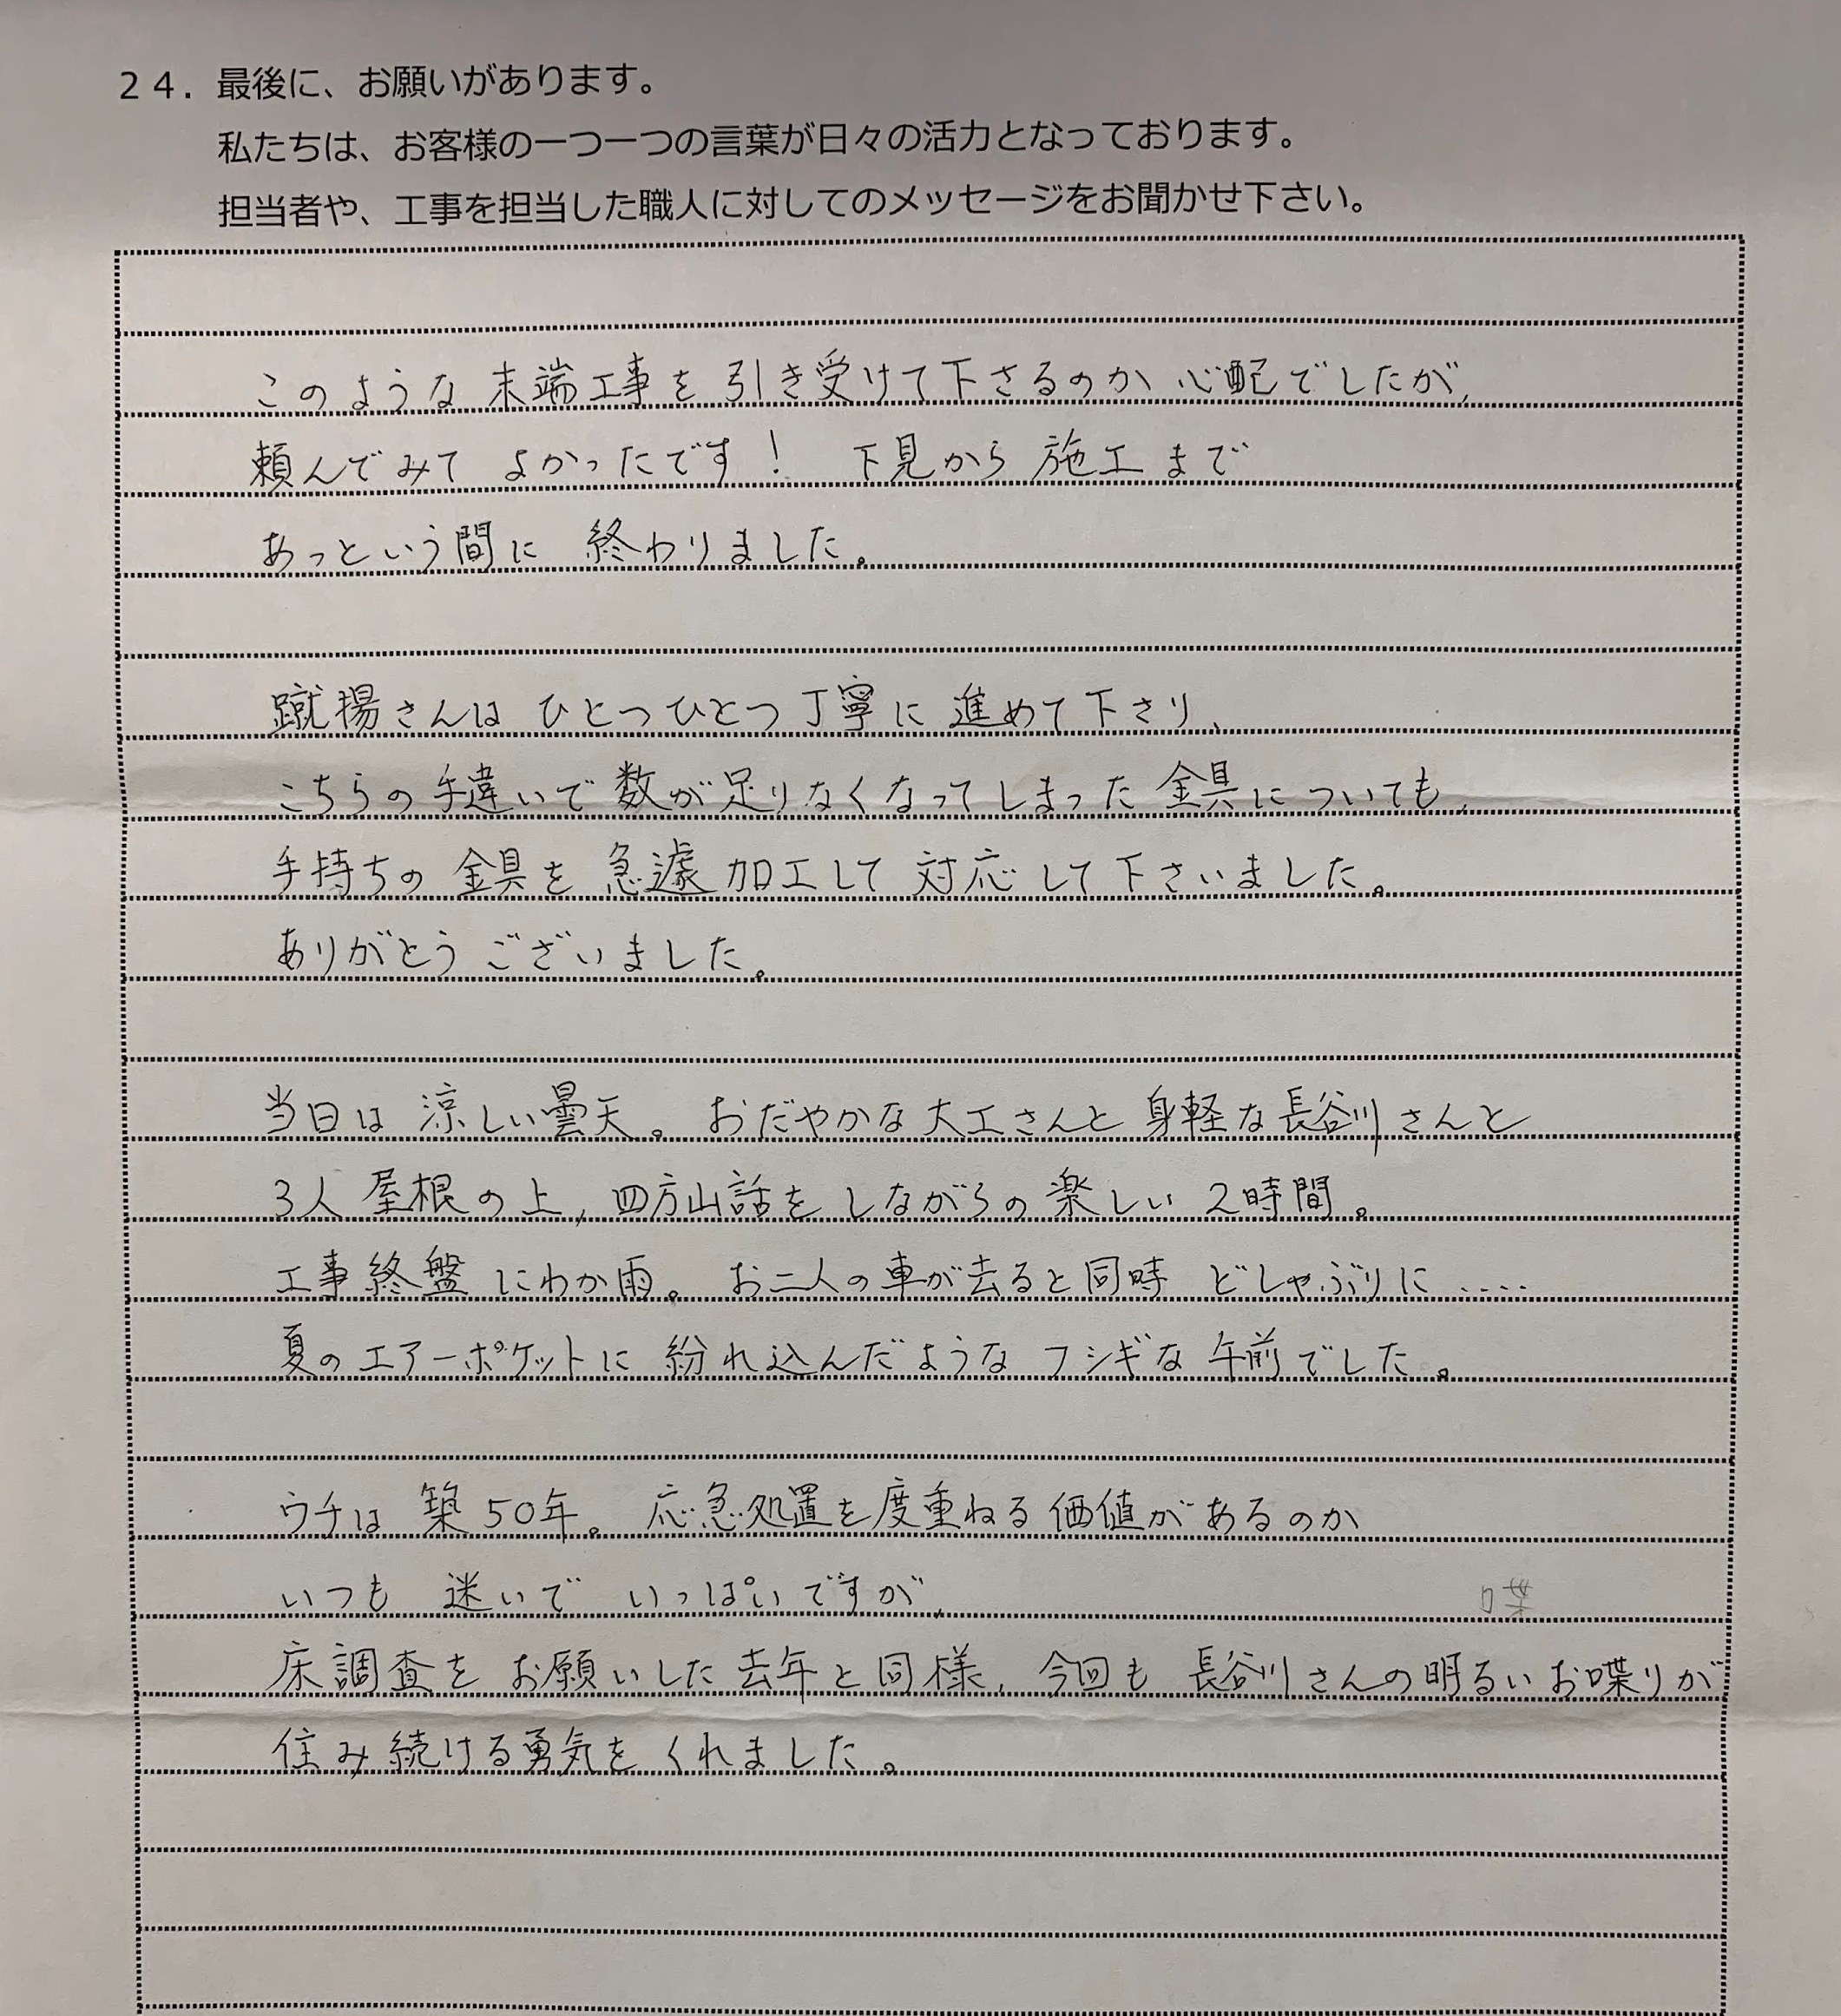 ２４．最後に、お願いがあります。
私たちは、お客様の一つ一つの言葉が日々の活力となっております。
担当者や、工事を担当した職人に対してのメッセージをお聞かせ下さい。
このような末端工事を引き受けて下さるのか心配でしたが、
頼んでみて よかったです！ 下見から施工まで
あっという間に 終わりました。
蹴揚さんは ひとつひとつ丁寧に進めて下さり、
こちらの手違いで数が足りなくなってしまった金具についても、
手持ちの金具を急遽加工して対応して下さいました。
ありがとうございました。
当日は涼しい曇天。おだやかな大工さんと身軽な長谷川さんと
3人屋根の上、四方山話をしながらの楽しい2時間。
工事終盤にわか雨。お二人の車が去ると同時どしゃぶりに‥‥
夏のエアーポケットに紛れ込んだようなフシギな午前でした。
ウチは築50年。応急処置を度重ねる価値があるのか
いつも 迷いで いっぱいですが、
喋
床調査をお願いした去年と同様、今回も長谷川さんの明るいお喋りが
住み続ける勇気をくれました。